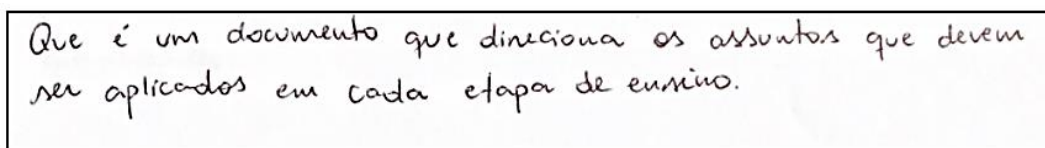 Que é um documento que direciona os assuntos que devem
ser aplicados em cada etapa de ensino.